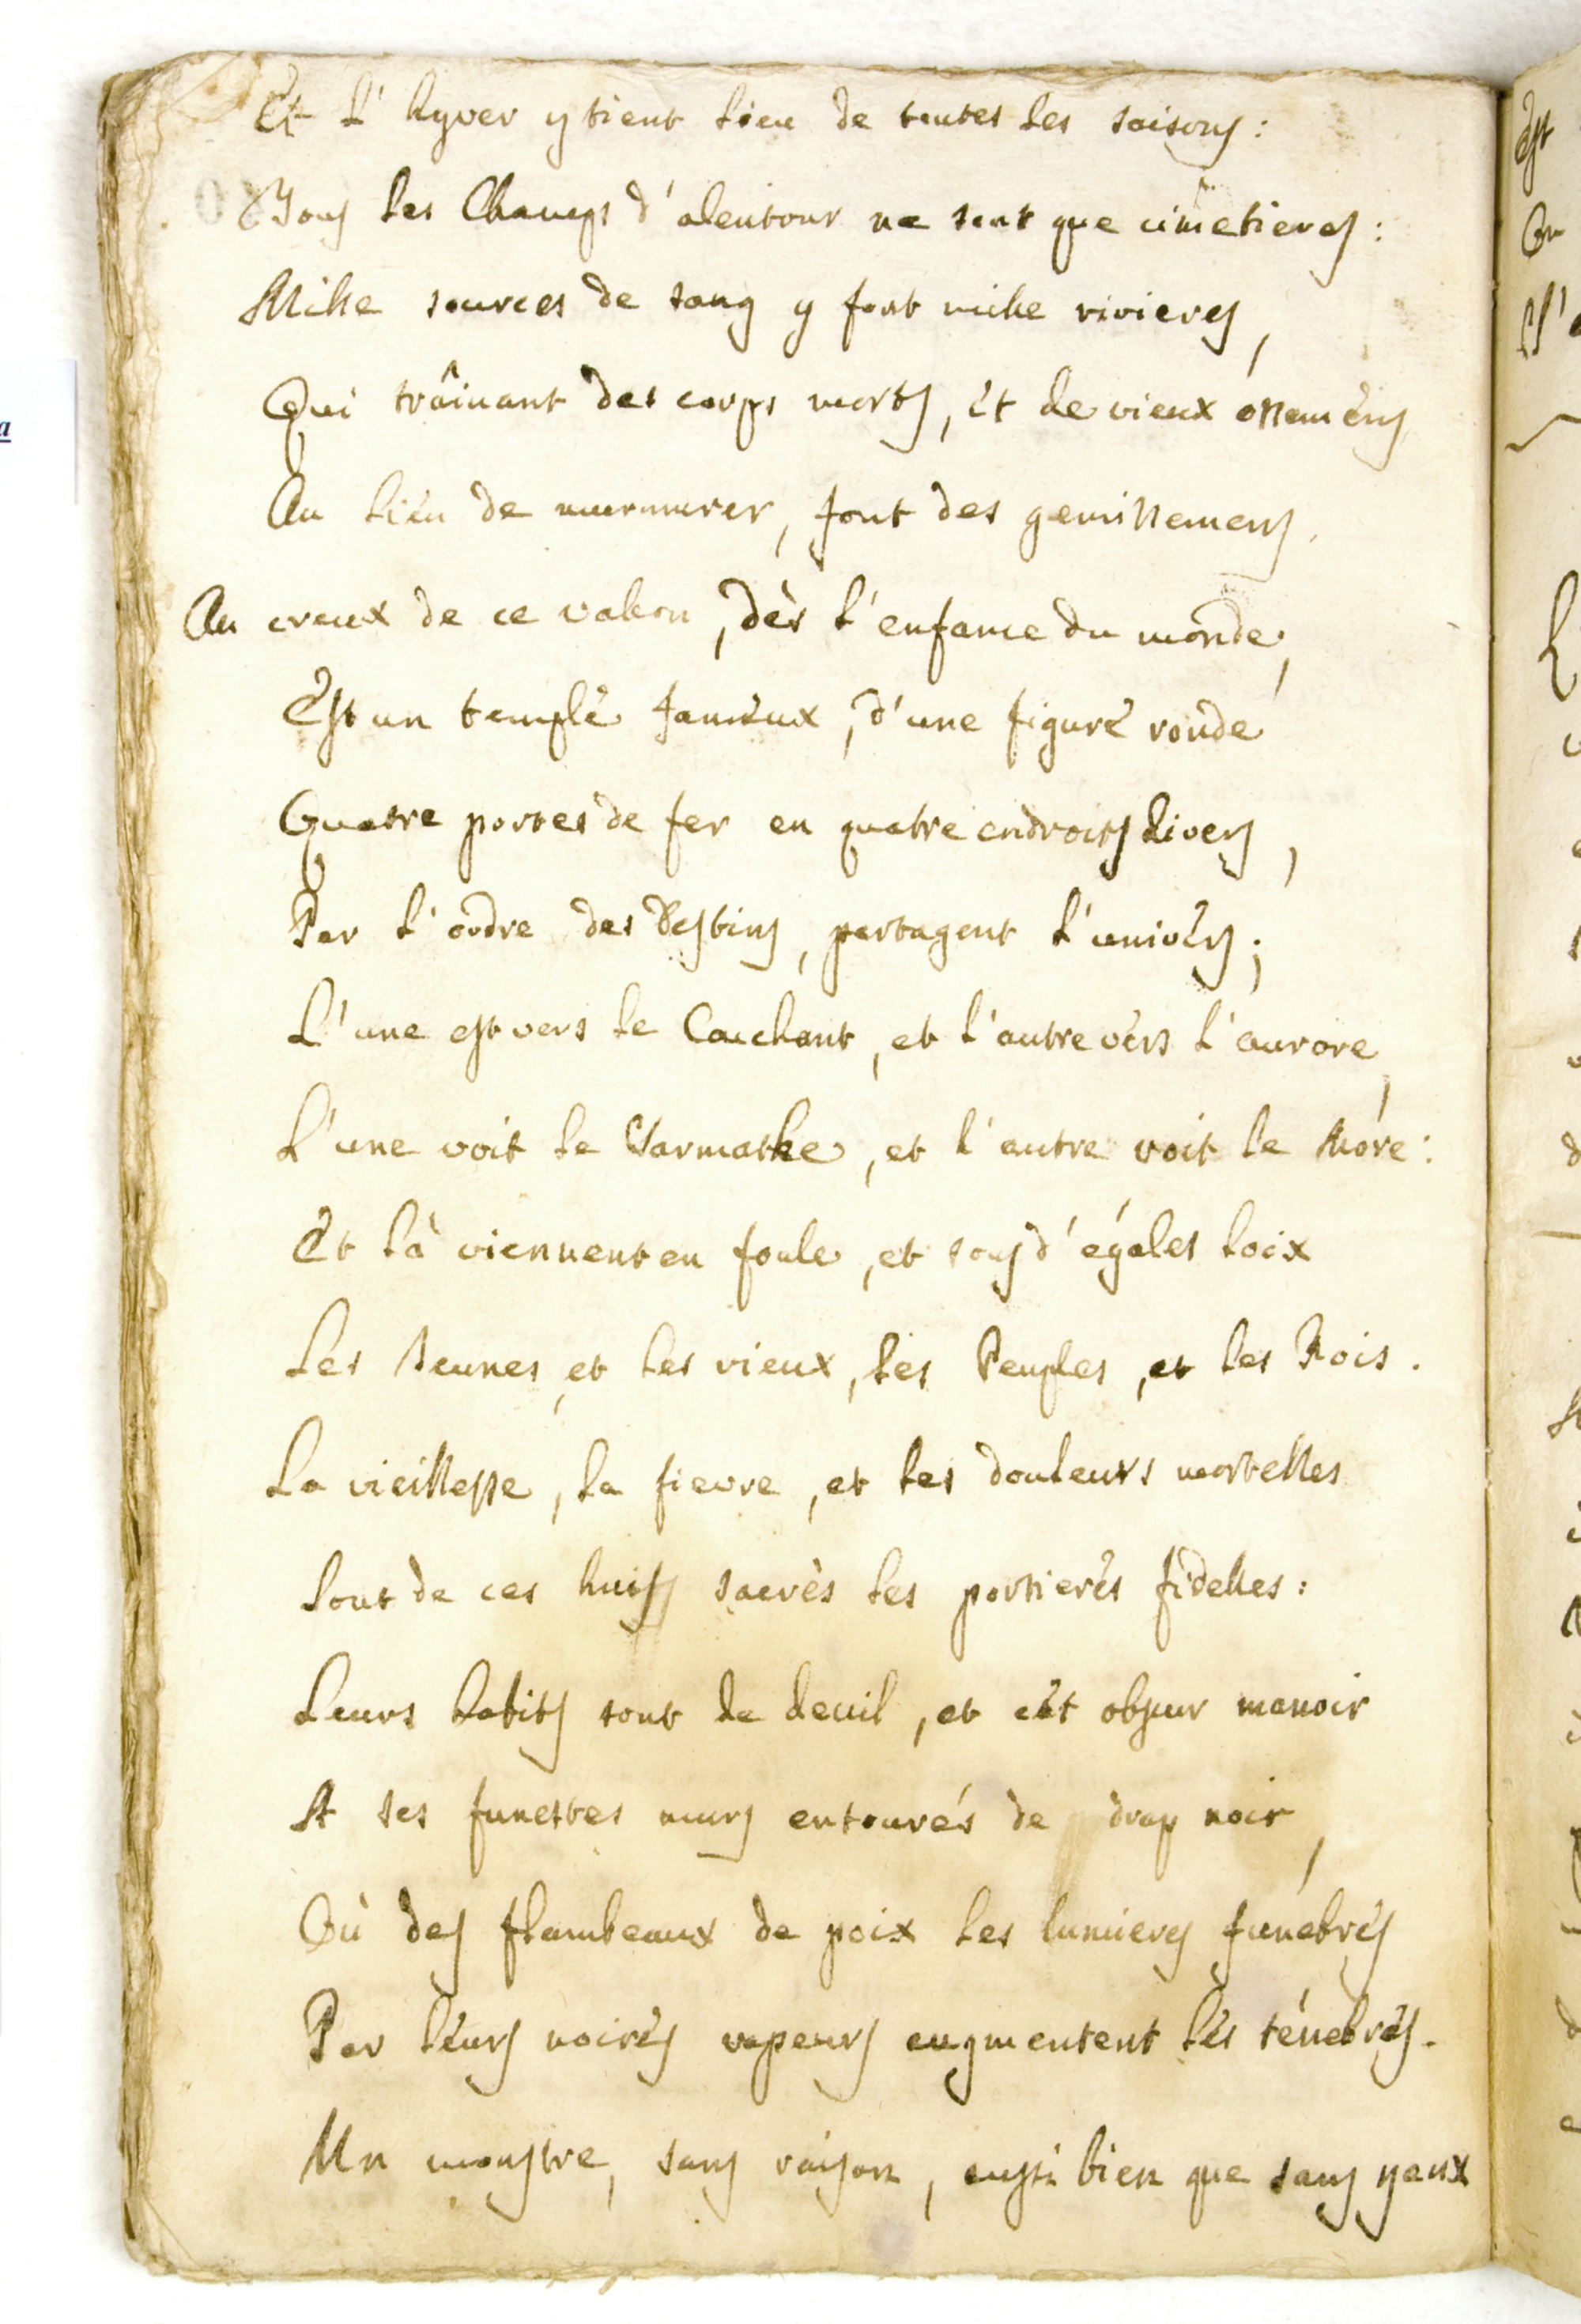 Et l'hyver y tient lieu de toutes les saisons :
Tous les Champs d'alentour ne sont que cimetieres :
Mille sources de sang y font mille rivieres,
Qui traînant des corps morts, et de vieux ossemens
Au lieu de murmurer, font des gemissemens,
Au creux de ce valon, dès l'enfance du monde,
Est un temple fameux, d'une figure ronde
Quatre portes de fer en quatre endroits divers,
Par l'ordre des Destins, partagent l'univers;
L'une est vers le Couchant, et l'autre vers l'aurore,
L'une voit le Sarmathe, et l'autre voit le More :
Et là viennent en foule, et sous d'égales loix
Les Jeunes, et les vieux, les Peuples, et les Rois.
La vieillesse, la fievre, et les douleurs mortelles
Sont de ces huiss sacrès les portieres fidelles :
Leurs habits sont de deuil, et cet obscur manoir
A ses funestes murs entourés de drap noir,
Où des flambeaux de poix les lumieres funébres
Par leurs noires vapeurs augmentent les ténebres.
Un monstre, sans raison, aussi bien que sans yeux